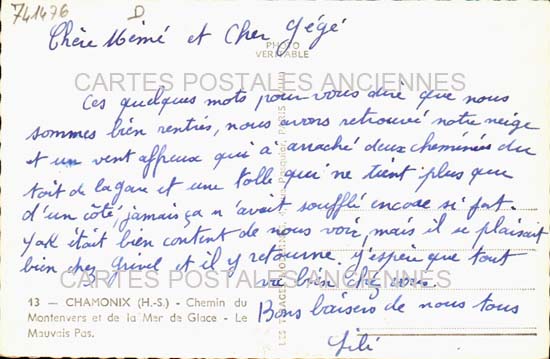 741476 D
Chère Mémé et Cher Gégé
PHOTO
VERITABLE
CARTES POSTALES ANCIENNES
Ces quelques mots pour vous dire que nous
sommes bien rentrés, nous avons retrouvé notre neige
et un vent affreux qui a arraché deux cheminées du
toit de la gare et une tolle qui ne tient plus que
d'un côté, jamais ça n'avait soufflé encore si fort.
Yak était bien content de nous voir, mais il se plaisait
bien chez Grivel et il y retourne. J'espère que tout
va bien chez vous.
CARTES POSTALES ANCIENNES
13 — CHAMONIX (H.-S.) - Chemin du
Montenvers et de la Mer de Glace - Le
Mauvais Pas.
Bons baisers de nous tous
Lili